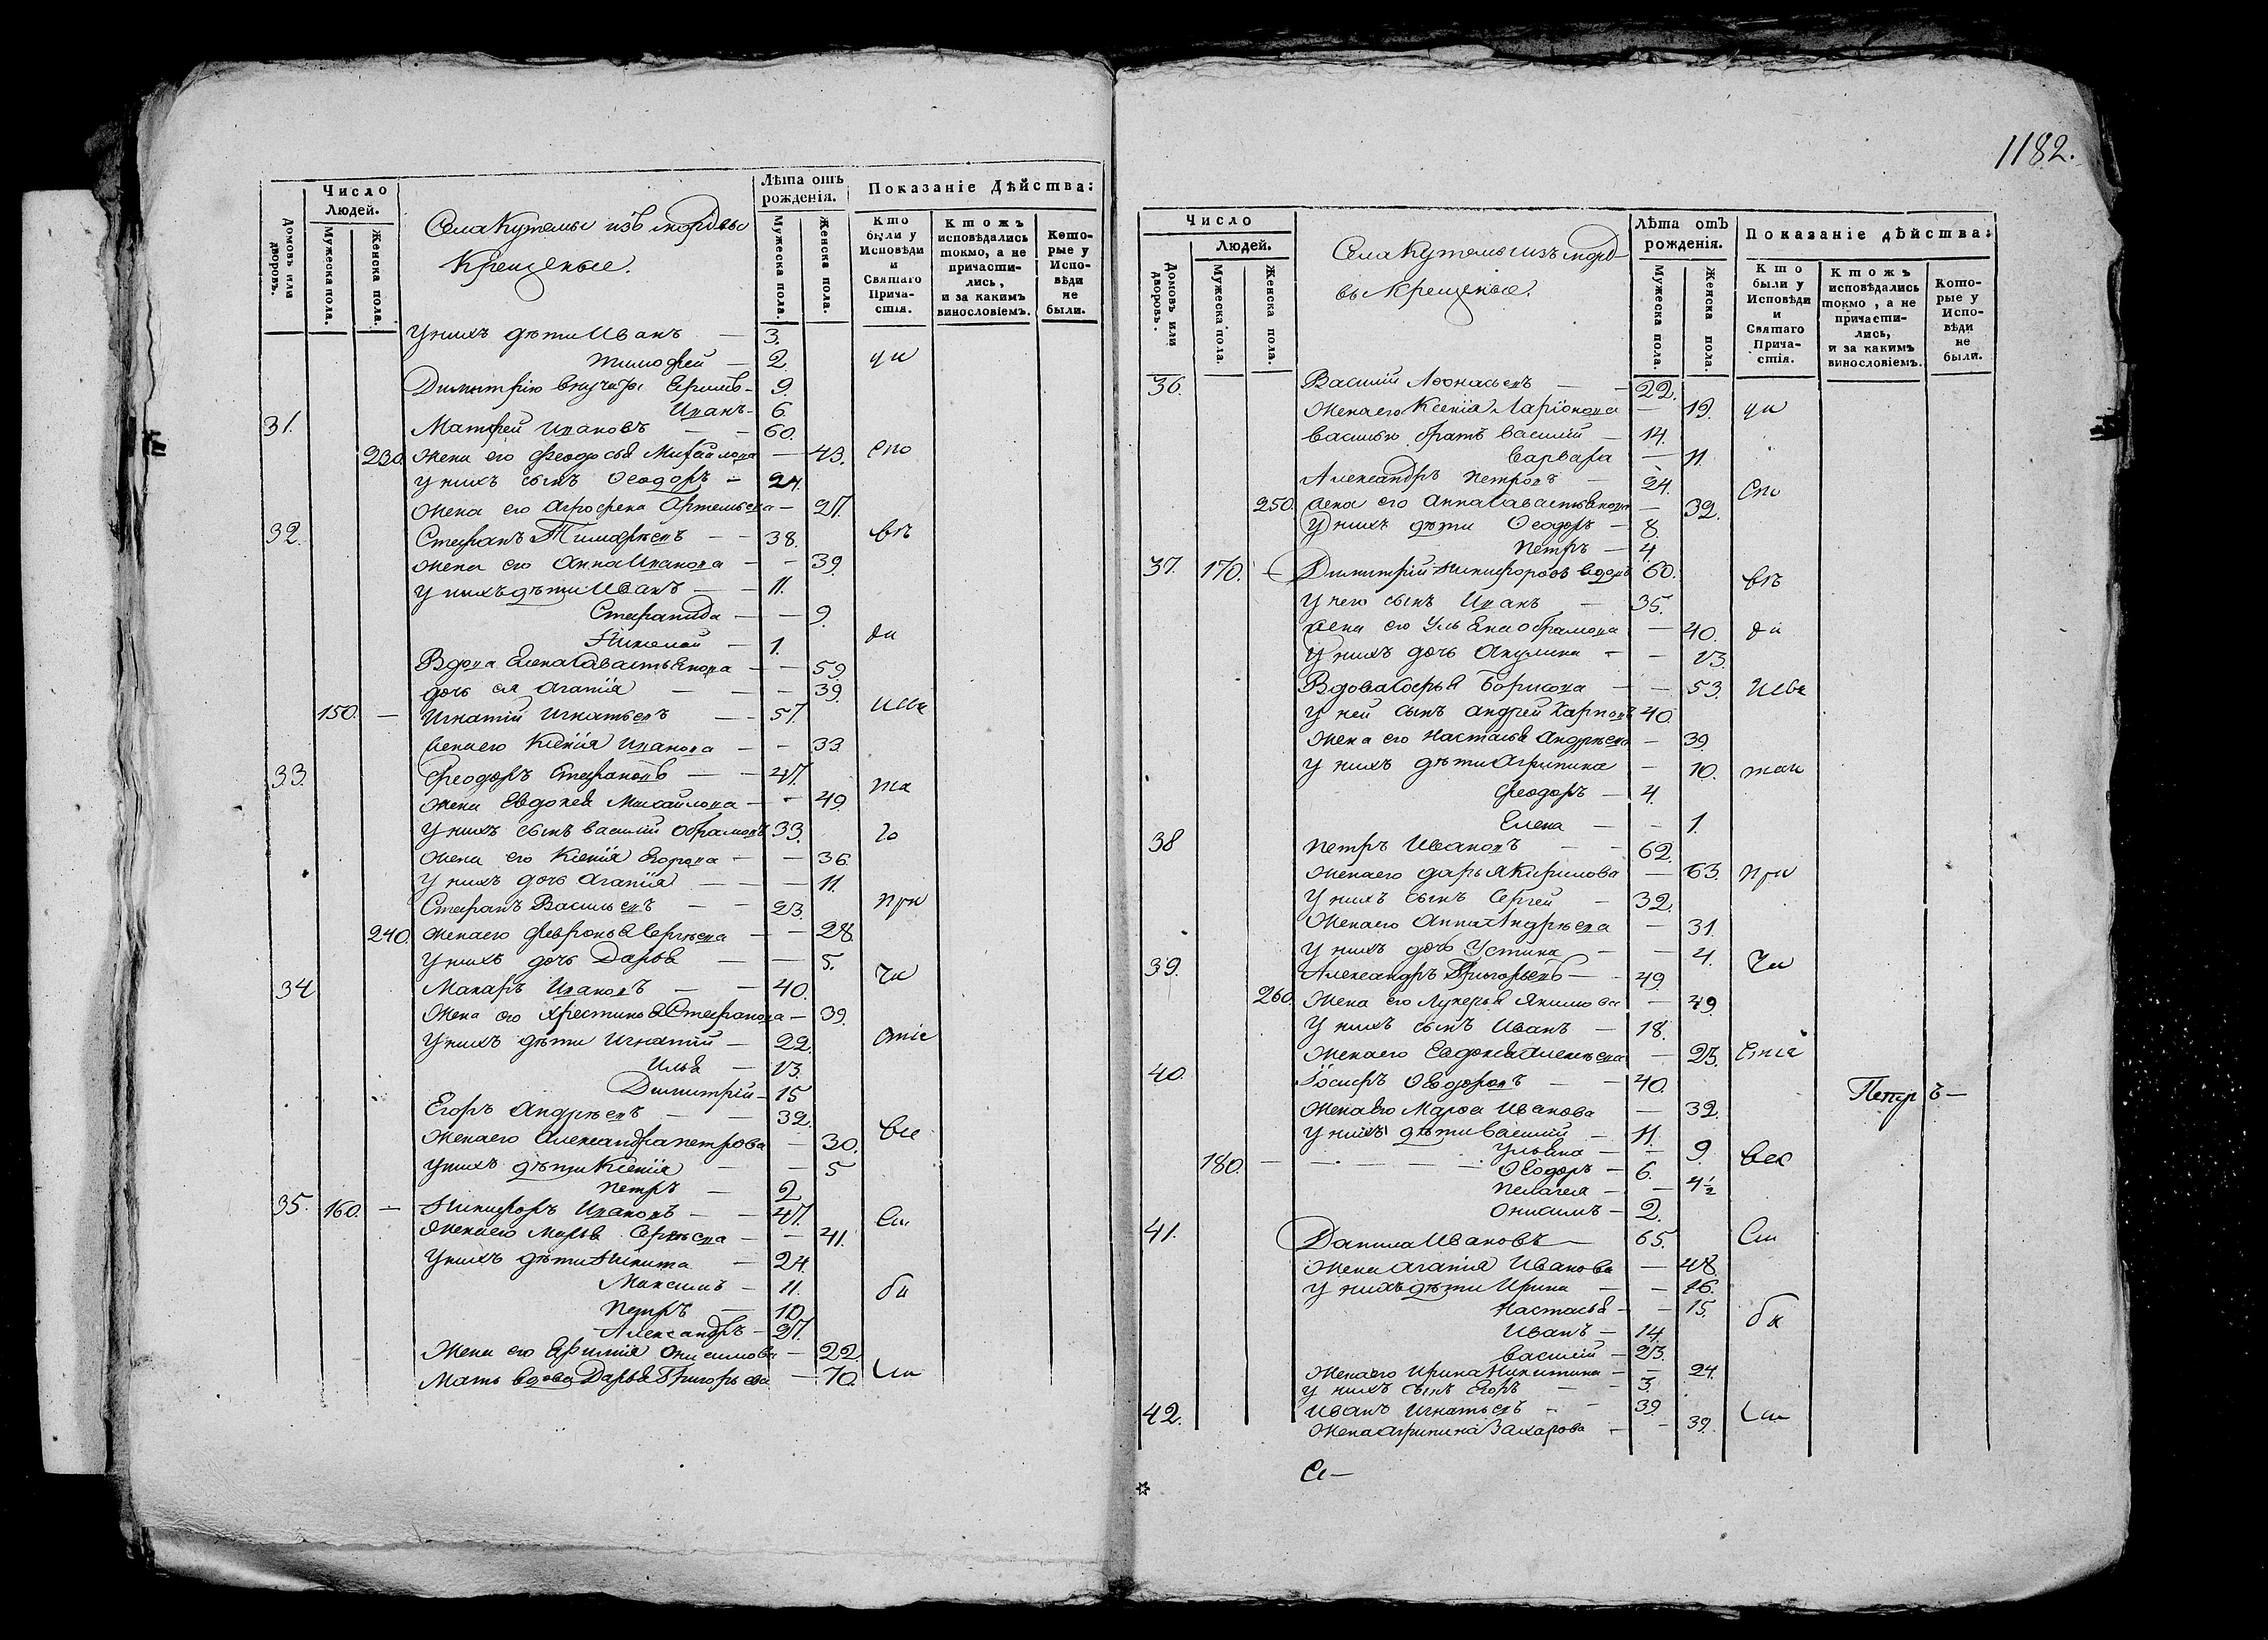 1182.
Число Людей.
Домовъ или дворовъ.
Мужеска пола.
Женска пола.
Села Кутемы изъ мордвы
Крещеные.
Лѣта отъ рожденія.
Мужеска пола.
Женска пола.
Показаніе Дѣйства:
Кто были у Исповѣди и Святаго Причастія.
Ктожъ исповѣдались токмо, а не причастились, и за какимъ винословіемъ.
Которые у Исповѣди не были.
У нихъ дѣти Иванъ — 3.
Тимофей — 2.
Димитрію внучата — 9.
Иванъ — 6
31. Матфей Ивановъ — 60.
230. Жена его Феодосья Михайлова — 43.
У нихъ сынъ Ѳеодоръ — 24.
Жена его Агрофена Артемьева — 27.
32. Стефанъ Тимофѣевъ — 38.
Жена его Анна Иванова — 39.
У нихъ дѣти Иванъ — 11.
Степанида — 9.
Николай — 1.
Вдова Елена Савастьянова — 59
дочь ея Агапія — 39.
150. — Игнатій Игнатьевъ — 57.
Жена его Ксенія Иванова — 33.
33. Феодоръ Стефановъ — 47.
Жена Евдокея Михайлова — 49.
У нихъ сынъ Василій Обрамовъ 33.
Жена его Ксенія Егорова — 36.
У нихъ дочь Агапія — 11.
Стефанъ Васильевъ — 23.
240. Жена его Февронья Сергѣева — 28.
У нихъ дочь Дарья — 5.
34 Макаръ Ивановъ — 40.
Жена его Христинья Стефанова — 39.
У нихъ дѣти Игнатій — 22.
Илья — 13.
Димитрій — 15
Егоръ Андрѣевъ — 32.
Жена его Александра Петрова — 30.
У нихъ дѣти Ксенія — 5
Петръ — 2
35. 160. — Никифоръ Ивановъ — 47.
Жена его Марья Сергѣева — 41.
У нихъ дѣти Никита — 24.
Максимъ — 11.
Петръ — 10.
Александръ — 27.
Жена его Онисимова — 22.
Мать вдова Дарья Григорьева — 70.
Число Людей.
Домовъ или дворовъ.
Мужеска пола.
Женска пола.
Села Кутемы изъ морд-
вы Крещеные.
Лѣта отъ рожденія.
Мужеска пола.
Женска пола.
Показаніе дѣйства:
Кто были у Исповѣди и Святаго Причастія.
Ктожъ исповѣдались токмо, а не причастились, и за какимъ винословіемъ.
Которые у Исповѣди не были.
36. Василій Афонасьевъ — 22.
Жена его Ксенія Ларіонова — 19.
Василью братъ Василій — 14.
Варвара — 11
Александръ Петровъ — 24.
250. Жена его Анна Савастьянова — 32.
У нихъ дѣти Ѳеодоръ — 8.
Петръ — 4
37. 170. — Димитрій Никифоровъ вдовъ 60.
У него сынъ Иванъ — 35.
Жена его Ульяна Обрамова — 40.
У нихъ дочь Акулина — 13.
Вдова Софья Борисова — 53.
У ней сынъ Андрей Карповъ 40.
Жена его Настасья Андрѣева — 39
У нихъ дѣти Агрипина — 10.
Феодоръ — 4.
Елена — 1.
38 Петръ Ивановъ — 62.
Жена его Дарья Кирилова — 63.
У нихъ сынъ Сергей — 32.
Жена его Анна Андрѣева — 31.
У нихъ дочь Устина — 4.
39. Александръ Григорьевъ — 49.
260. Жена его Лукерья Якимова — 49.
У нихъ сынъ Иванъ — 18.
Жена его Евдокея Алексѣева — 23.
40. Іосифъ Ѳеодоровъ — 40. Петръ —
Жена его Марфа Иванова — 32.
У нихъ дѣти Василій — 11.
Ульяна — 9.
180. — Ѳеодоръ — 6.
Пелагея — 4½
Онисимъ — 2.
41. Данила Ивановъ — 65.
Жена Агапія Иванова — 48.
У нихъ дѣти Ирина — 16.
Настасья — 15.
Иванъ — 14.
Василій — 23.
Жена его Ирина Никитина — 24.
У нихъ сынъ Егоръ — 3.
42. Иванъ Игнатьевъ — 39.
Жена Агрипина Захарова — 39.